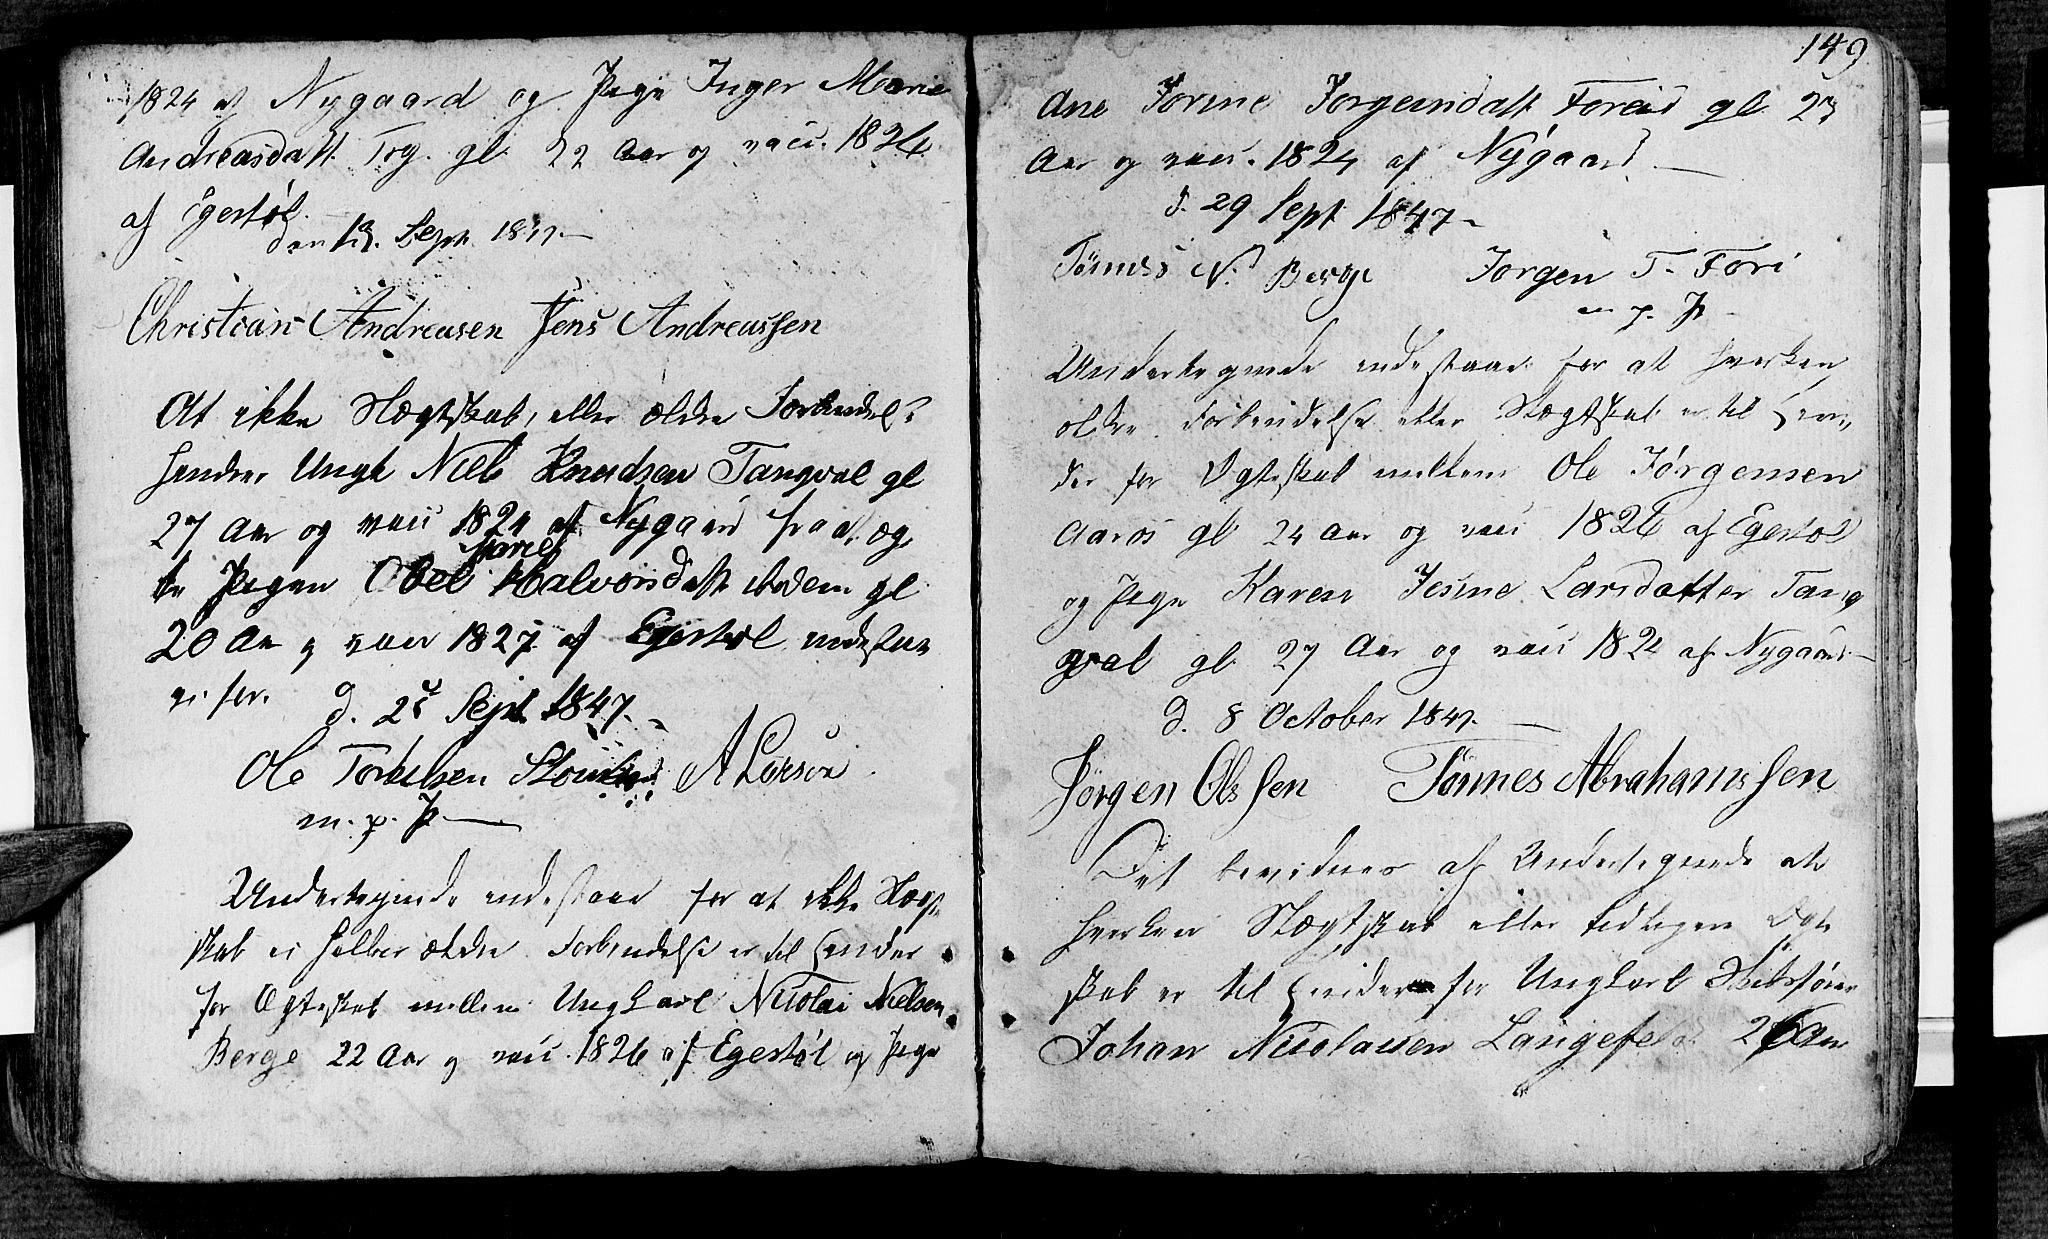 1824 af Nygaard og Pige Inger Marie
Andreasdatt. Trg. gl 22 Aar og vacc. 1826
af Egestøl.
den 12. Sept. 1847.
Christian Andreasen Jens Andreassen
At ikke Slægtskab, eller ældre Forbindelse
hindrer Ungk Niels Knudsen Tangval gl
27 Aar og vacc 1824 af Nygaard fra at æg-
te Pigen Obel Marie Halvorsdatt ibidem gl
20 Aar og vacc 1827 af Egestøl indestaa
vi for.
d. 25 Sept 1847.
Ole Torkelsen A Larson
m. p. P
Undertegnede indestaar for at ikke Slægt-
skab ei heller ældre Forbindelse er til Hinder
for Ægteskab mellem Ungkarl Nicolai Nielsen
Berge 22 Aar og vacc. 1826 af Egestøl og Pige
149
Ane Jorine Jorgensdatt Foreid gl 23
Aar og vacc. 1824 af Nygaard.
d. 29 Sept 1847
Tønnes N. Berge Jorgen T. Fori
m. p. P
Undertegnede indestaar for at hverken
ældre Forbindelse eller Slægtskab er til Hin-
der for Ægteskab mellem Ole Jørgensen
Aaros gl 24 Aar og vacc 1826 af Egestøl
og Pige Karen Jesine Larsdatter Tang
gval gl 27 Aar og vacc 1824 af Nygaard
d. 8 October 1847.
Jørgen Olssen Tønnes Abrahamssen
Det bevidnes af Undertegnede at
hverken Slægtskab eller tidligere Ægte
skab er til Hinder for Ungkarl Skibsfører
Johan Nicolaisen Langefeld 26 Aar